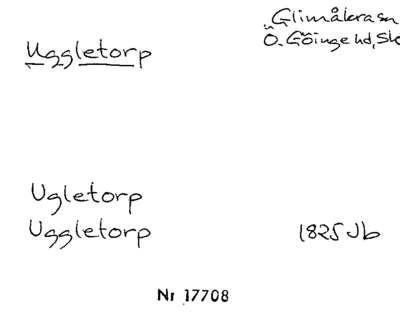 Glimåkra sn
Uggletorp
Ö. Göinge hd, Sk
Ugletorp
Uggletorp
1825 Jb
Nr 17708